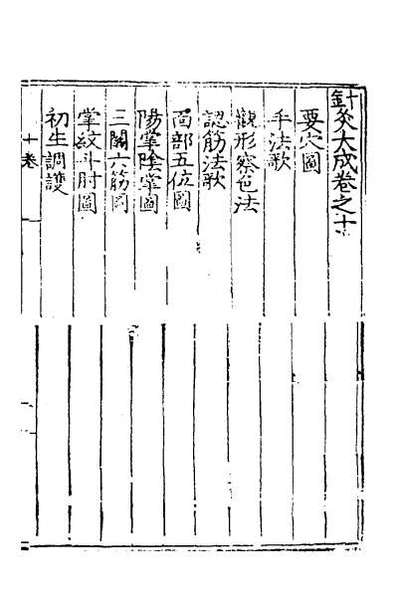 針灸大成卷之十
要穴圖
手法歌
觀形察色法
認筋法歌
面部五位圖
陽掌陰掌圖
三關六筋圖
掌紋斗肘圖
初生調護
十卷